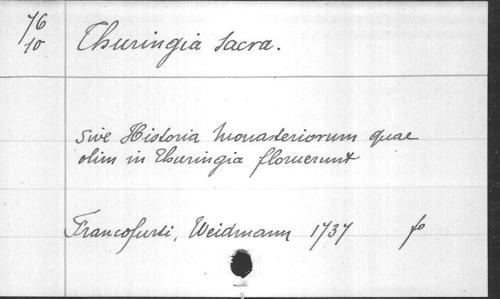 76
10
Thuringia Sacra.
sive Historia monasteriorum quae
olim in Thuringia floruerunt
Francofurti, Weidmann 1737 fo